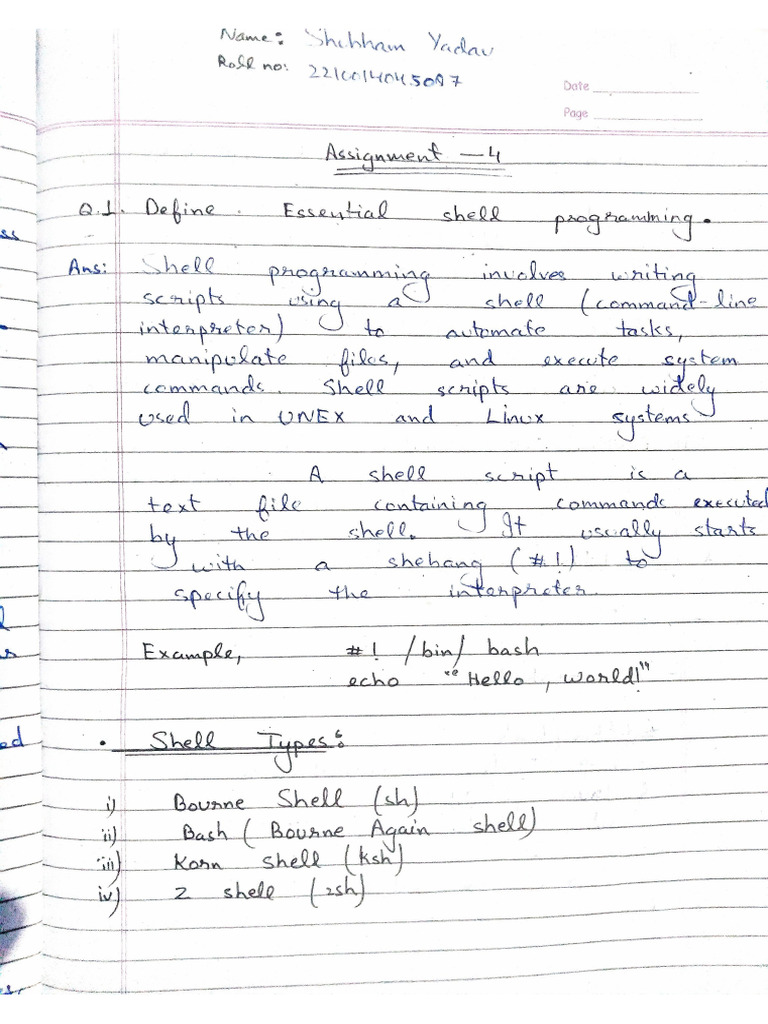 Name: Shubham Yadav
Roll no:
Date
Page
Assignment - 4
Q.1. Define. Essential shell programming.
Ans: Shell programming involves writing
scripts using a shell (command-line
interpreter) to automate tasks,
manipulate files, and execute system
commands. Shell scripts are widely
used in UNEX and Linux systems
A shell script is a
text file containing commands executed
by the shell. It usually starts
with a shebang (#!) to
specify the interpreter.
Example, #! /bin/ bash
echo "Hello, world!"
• Shell Types:
i) Bourne Shell (sh)
ii) Bash ( Bourne Again shell)
iii) Korn shell (ksh)
iv) Z shell (zsh)